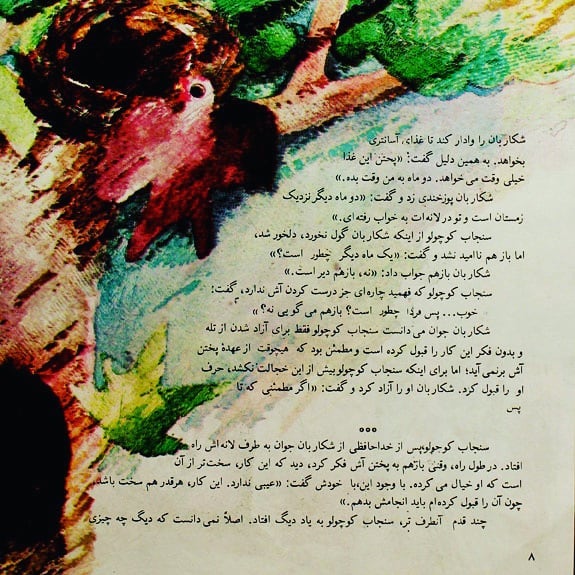 شکاربان را وادار کند تا غذای آسانتری
بخواهد. به همین دلیل گفت: «پختن این غذا
خیلی وقت می‌خواهد. دو ماه به من وقت بده.»
شکاربان پوزخندی زد و گفت: «دو ماه دیگر نزدیک
زمستان است و تو در لانه‌ات به خواب رفته‌ای.»
سنجاب کوچولو از اینکه شکاربان گول نخورد، دلخور شد،
اما باز هم ناامید نشد و گفت: «یک ماه دیگر چطور است؟»
شکاربان بازهم جواب داد: «نه، بازهم دیر است.»
سنجاب کوچولو که فهمید چاره‌ای جز درست کردن آش ندارد، گفت:
خوب... پس فردا چطور است؟ بازهم می‌گویی نه؟»
شکاربان جوان می‌دانست سنجاب کوچولو فقط برای آزاد شدن از تله
و بدون فکر این کار را قبول کرده است و مطمئن بود که هیچوقت از عهدهٔ پختن
آش برنمی‌آید؛ اما برای اینکه سنجاب کوچولو بیش از این خجالت نکشد، حرف
او را قبول کرد. شکاربان او را آزاد کرد و گفت: «اگر مطمئنی که تا
پس
***
سنجاب کوچولو پس از خداحافظی از شکاربان جوان به طرف لانه‌اش راه
افتاد. در طول راه، وقتی بازهم به پختن آش فکر کرد، دید که این کار، سخت‌تر از آن
است که او خیال می‌کرده. با وجود این، با خودش گفت: «عیبی ندارد. این کار، هرقدر هم سخت باشد،
چون آن را قبول کرده‌ام باید انجامش بدهم.»
چند قدم آنطرف تر، سنجاب کوچولو به یاد دیگ افتاد. اصلاً نمی‌دانست که دیگ چه چیزی
۸